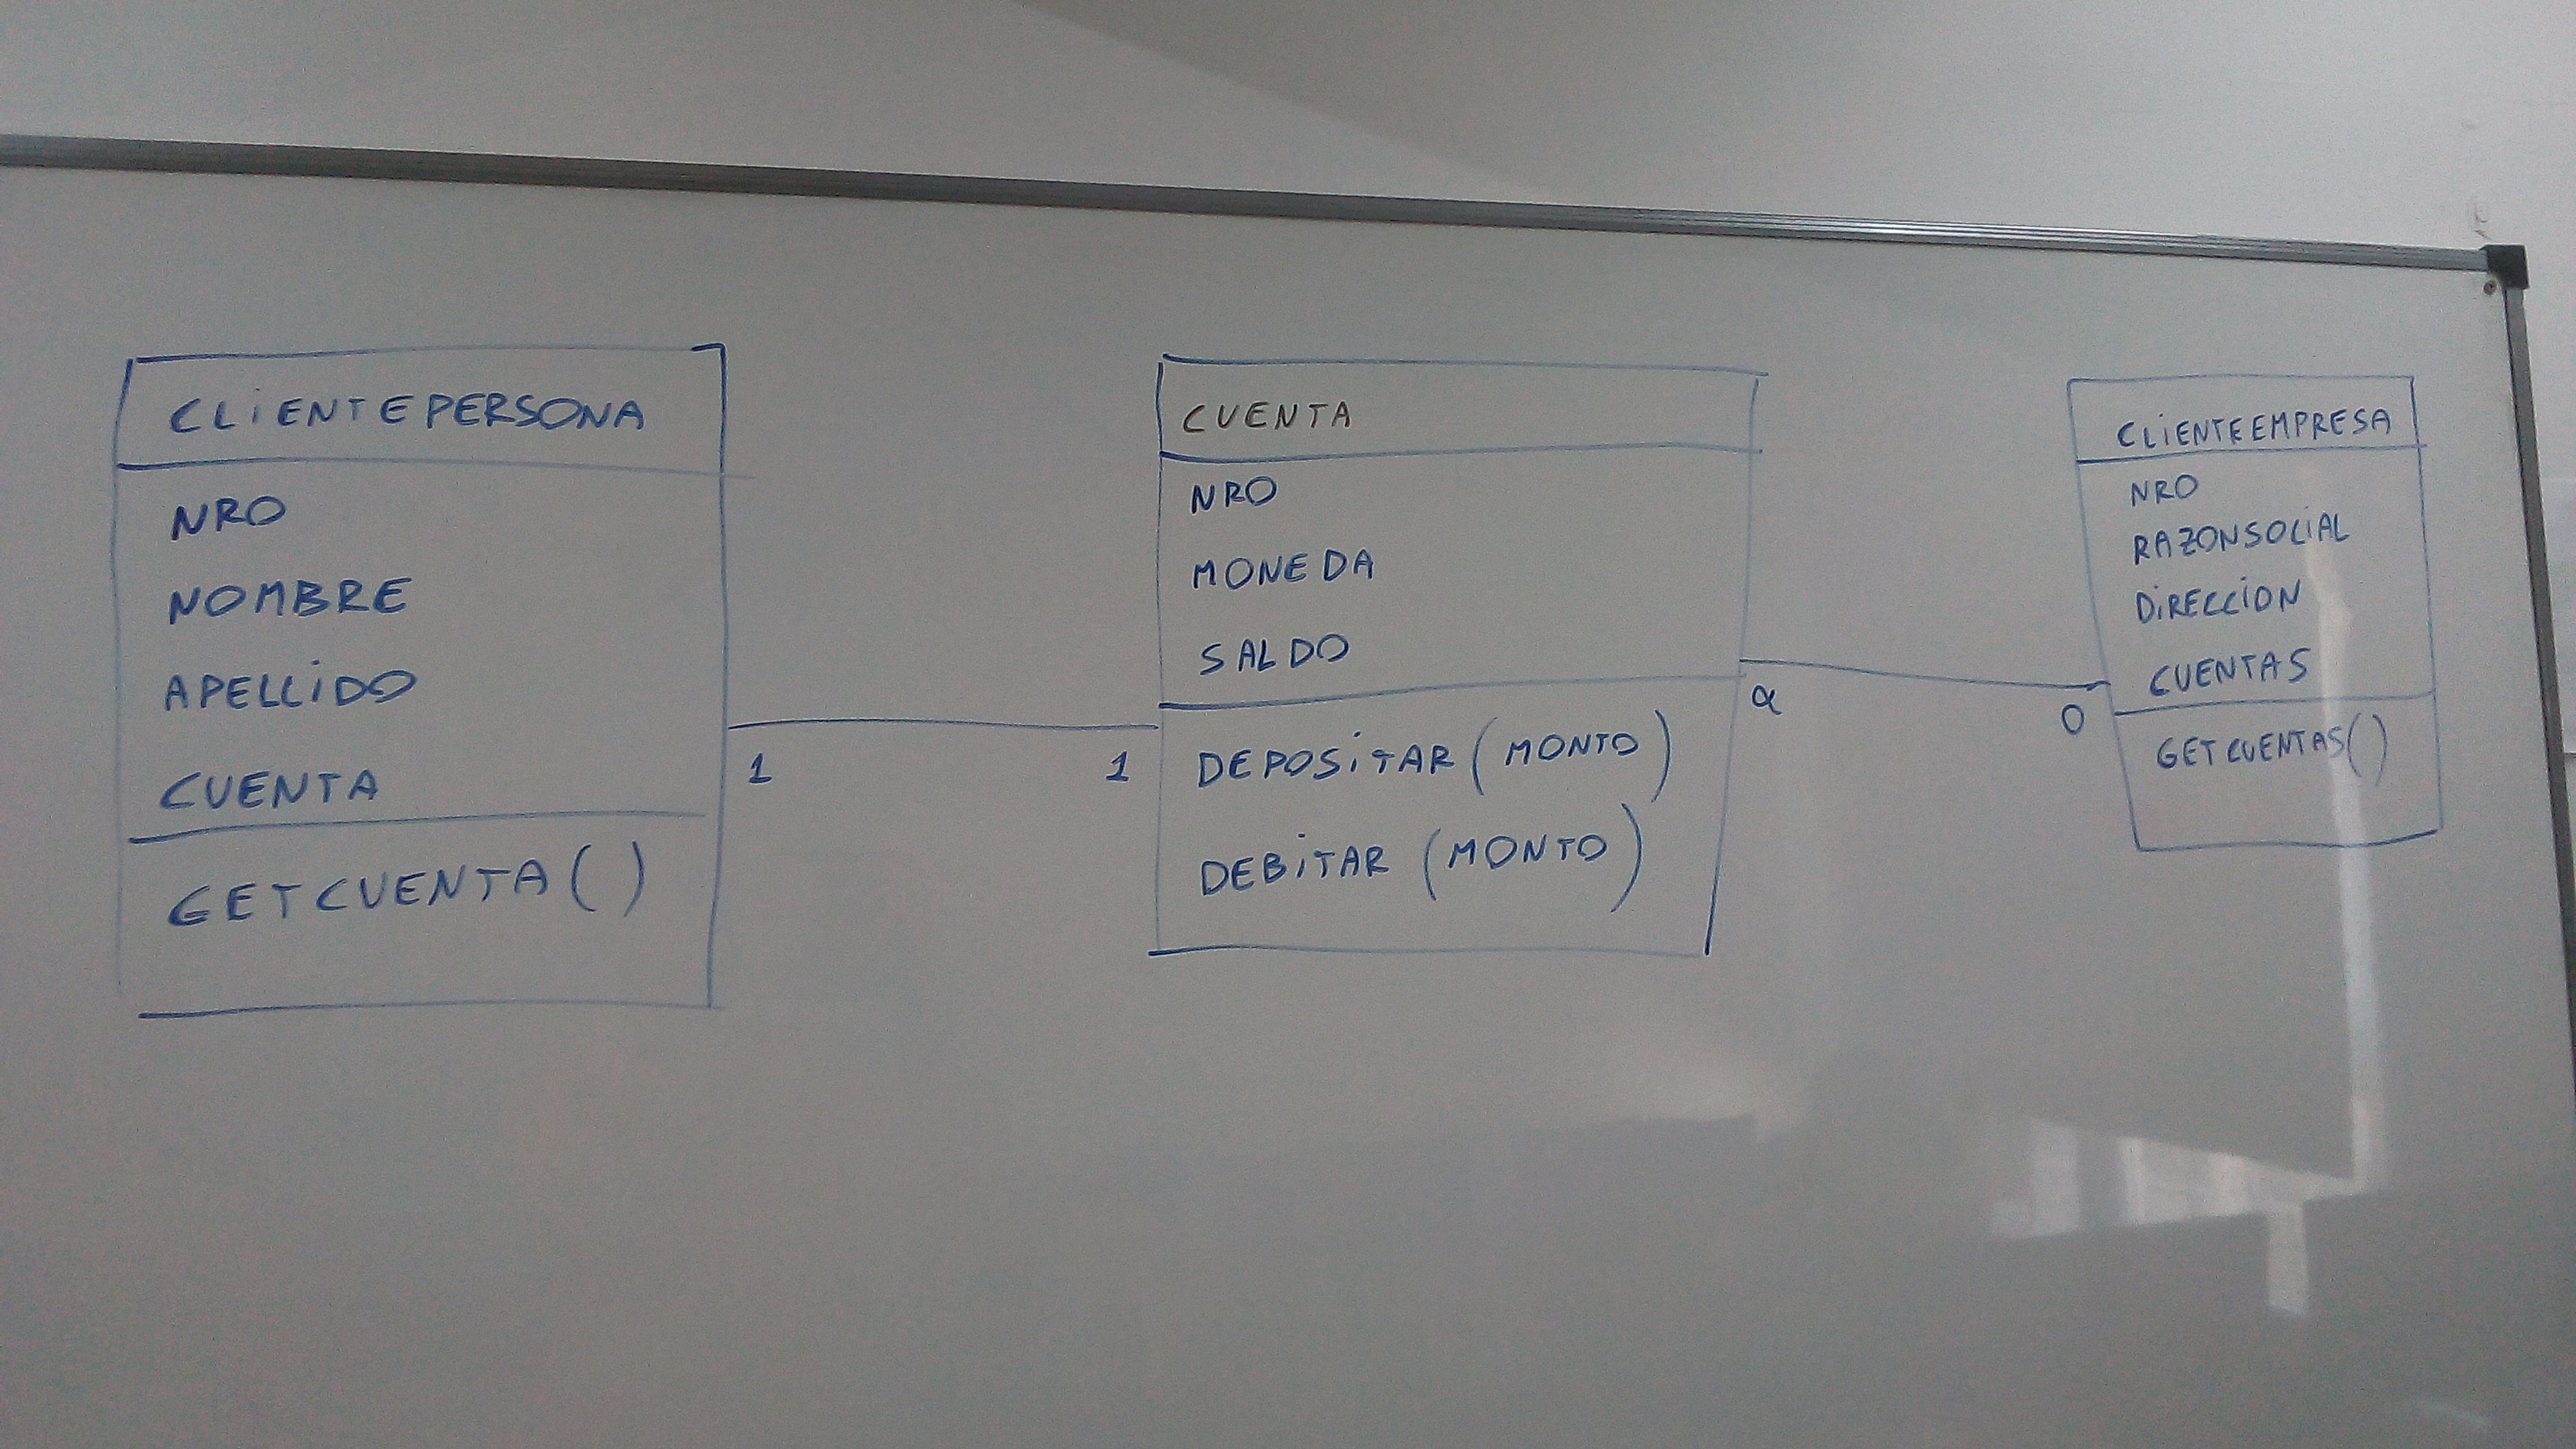 CLIENTEPERSONA
NRO
NOMBRE
APELLIDO
CUENTA
GETCUENTA()
1
1
CUENTA
NRO
MONEDA
SALDO
DEPOSITAR (MONTO)
DEBITAR (MONTO)
0
CLIENTEEMPRESA
NRO
RAZONSOCIAL
DIRECCION
CUENTAS
GETCUENTAS()